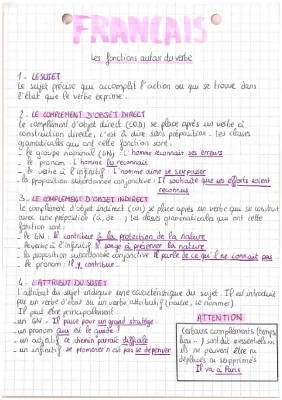 FRANÇAIS
Les fonctions autour du verbe
1 - LE SUJET
Le sujet précise qui accomplit l'action ou qui se trouve dans
l'état que le verbe exprime.
2 - LE COMPLÉMENT D'OBJET DIRECT
Le complément d'objet direct (COD) se place après un verbe à
construction directe, c'est à dire sans préposition. Les classes
grammaticales qui ont cette fonction sont:
- Le groupe nominal (GN): L'homme reconnait ses erreurs
- Le pronom: L'homme la reconnait
- Le verbe à l'infinitif: L'homme aime se surpasser
- la proposition subordonnée conjonctive: Il souhaite que ses efforts soient
reconnus
3 - LE COMPLÉMENT D'OBJET INDIRECT
Le complément d'objet indirect (COI) se place après un verbe qui se construit
avec une préposition (à, de...) les classes grammaticales qui ont cette
fonction sont:
- Le GN: Il contribue à la protection de la nature
- Le verbe à l'infinitif: Il songe à préserver la nature
- La proposition subordonnée conjonctive: Il parle de ce qu'il ne connait pas
- Le pronom: Il y contribue
4 - L'ATTRIBUT DU SUJET
L'attribut du sujet indique une caractéristique du sujet. Il est introduit
par un verbe d'état ou un verbe attributif (naitre, se nommer)
Il peut être principalement:
- un GN: Il passe pour un grand stratège
- un pronom: Qui est le guide?
- un adjectif: Ce chemin paraît difficile
- un infinitif: Se promener n'est pas se dépenser
ATTENTION
Certains compléments (temps,
lieu...) sont dits essentiels car
ils ne peuvent être ni
déplacés ni supprimés
Il va à Paris